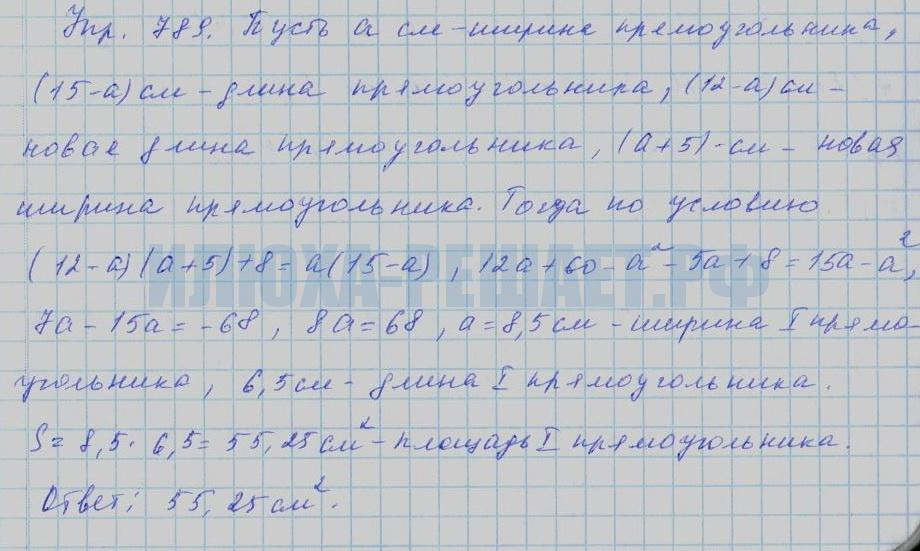 Упр. 789. Пусть a см – ширина прямоугольника,
(15-a) см – длина прямоугольника, (12-a) см –
новая длина прямоугольника, (a+5) - см – новая
ширина прямоугольника. Тогда по условию
(12-a)(a+5)+8=a(15-a), 12a+60-a²-5a+8=15a-a²,
ИЛЮХА-РЕШАЕТ.РФ
7a-15a=-68, 8a=68, a=8,5 см – ширина I прямо-
угольника, 6,5 см – длина I прямоугольника.
S=8,5·6,5=55,25 см² – площадь I прямоугольника.
Ответ: 55,25 см².